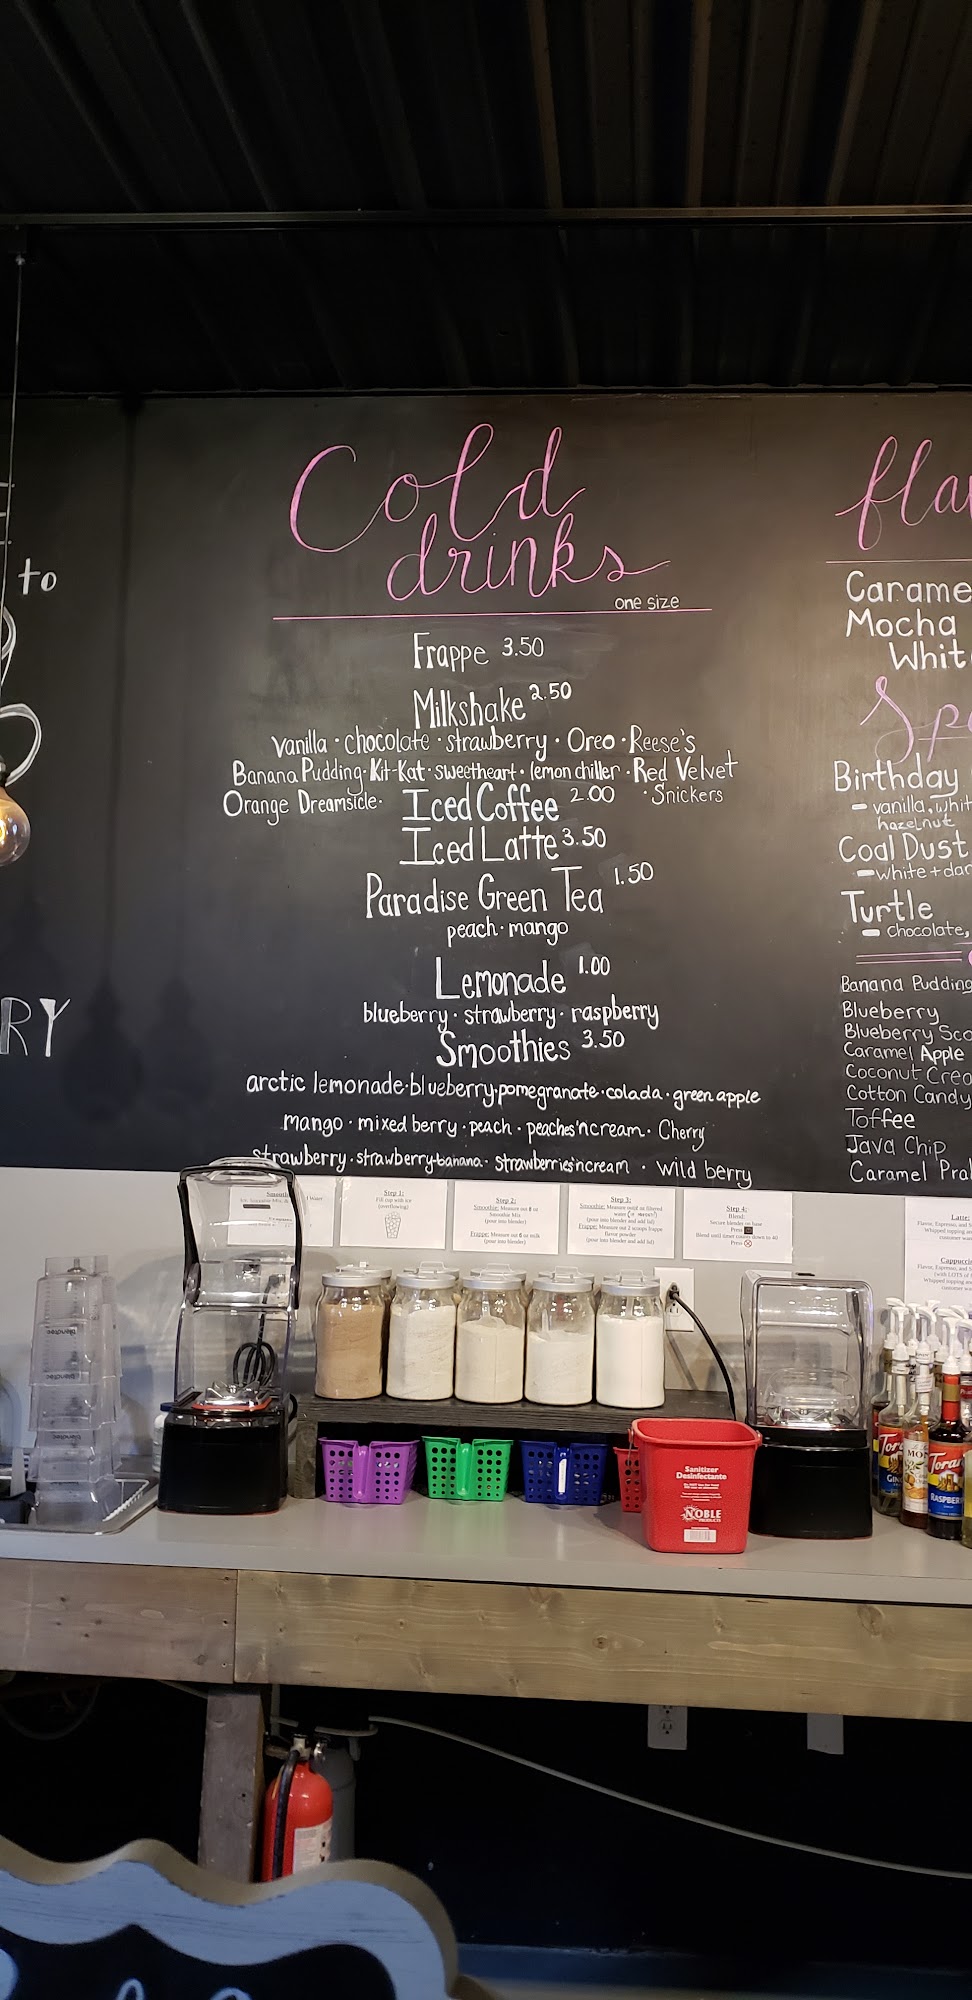 to
RY
Cold
drinks
one size
Frappe 3.50
Milkshake 2.50
vanilla · chocolate · strawberry · Oreo · Reese's
Banana Pudding · Kit-Kat · sweetheart · lemon chiller · Red Velvet
Orange Dreamsicle · Iced Coffee 2.00 · Snickers
Iced Latte 3.50
Paradise Green Tea 1.50
peach · mango
Lemonade 1.00
blueberry · strawberry · raspberry
Smoothies 3.50
arctic lemonade · blueberry · pomegranate · colada · green apple
mango · mixed berry · peach · peaches'ncream · Cherry
strawberry · strawberry-banana · strawberries'ncream · wild berry
fla
Carame
Mocha
Whit
Sp
Birthday
- vanilla, whit
hazelnut
Coal Dust
- white + dar
Turtle
- chocolate,
Banana Pudding
Blueberry
Blueberry Sco
Caramel Apple
Coconut Crea
Cotton Candy
Toffee
Java Chip
Caramel Pral
Step 1:
Fill cup with ice
(overflowing)
Step 2:
Smoothie: Measure out 8 oz
Smoothie Mix
(pour into blender)
Frappe: Measure out 6 oz milk
(pour into blender)
Step 3:
(pour into blender and add lid)
Frappe: Measure out 2 scoops frappe
flavor powder
(pour into blender and add lid)
Step 4:
Blend:
Secure blender on base
Press
Blend until timer counts down to 40
Press
Latte:
Cappuccin
Sanitizer
Desinfectante
NOBLE
PRODUCTS
Tora
Torani
RASPBERR